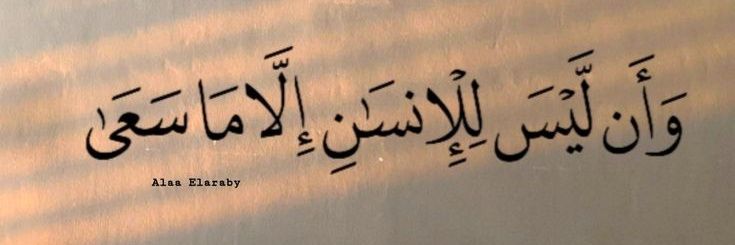 وَأَن لَّيۡسَ لِلۡإِنسَٰنِ إِلَّا مَا سَعَىٰ
Alaa Elaraby